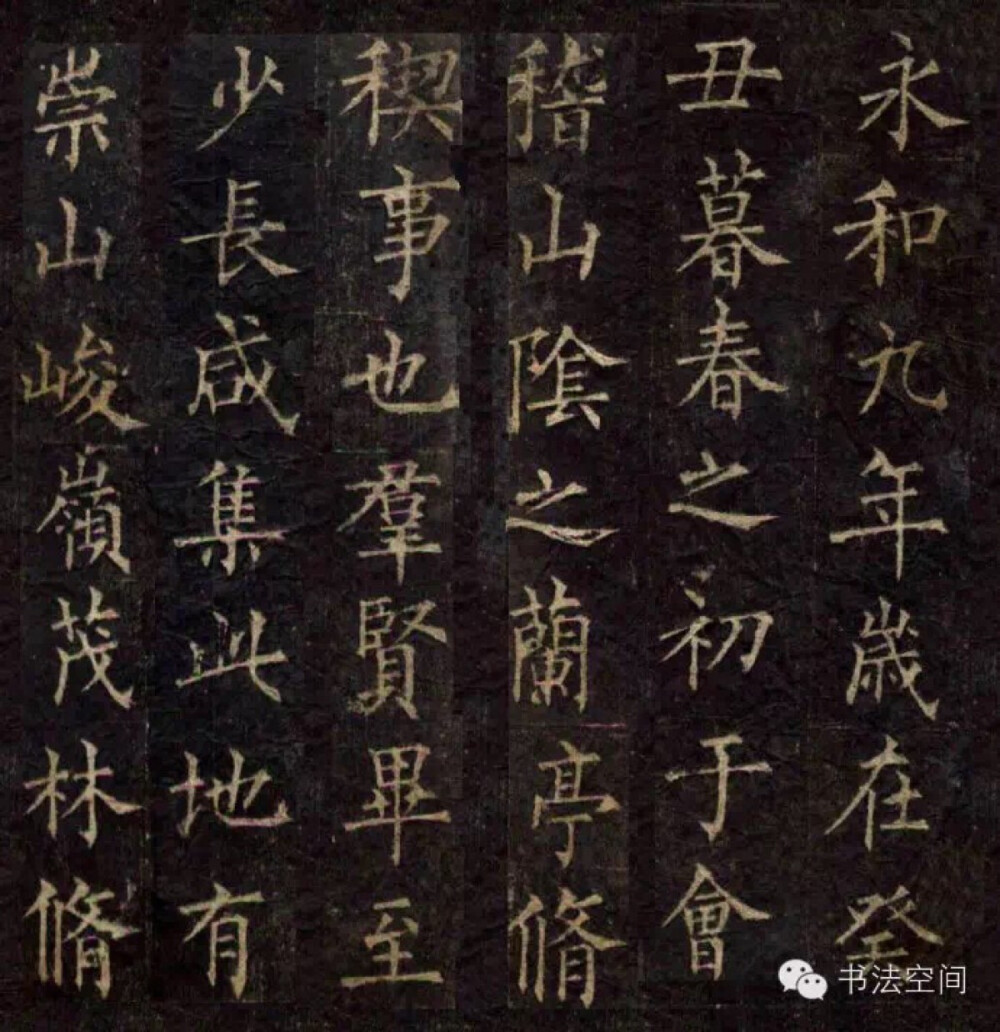 永和九年歲在癸
丑暮春之初于會
稽山陰之蘭亭脩
稧事也羣賢畢至
少長咸集此地有
崇山峻嶺茂林脩
书法空间